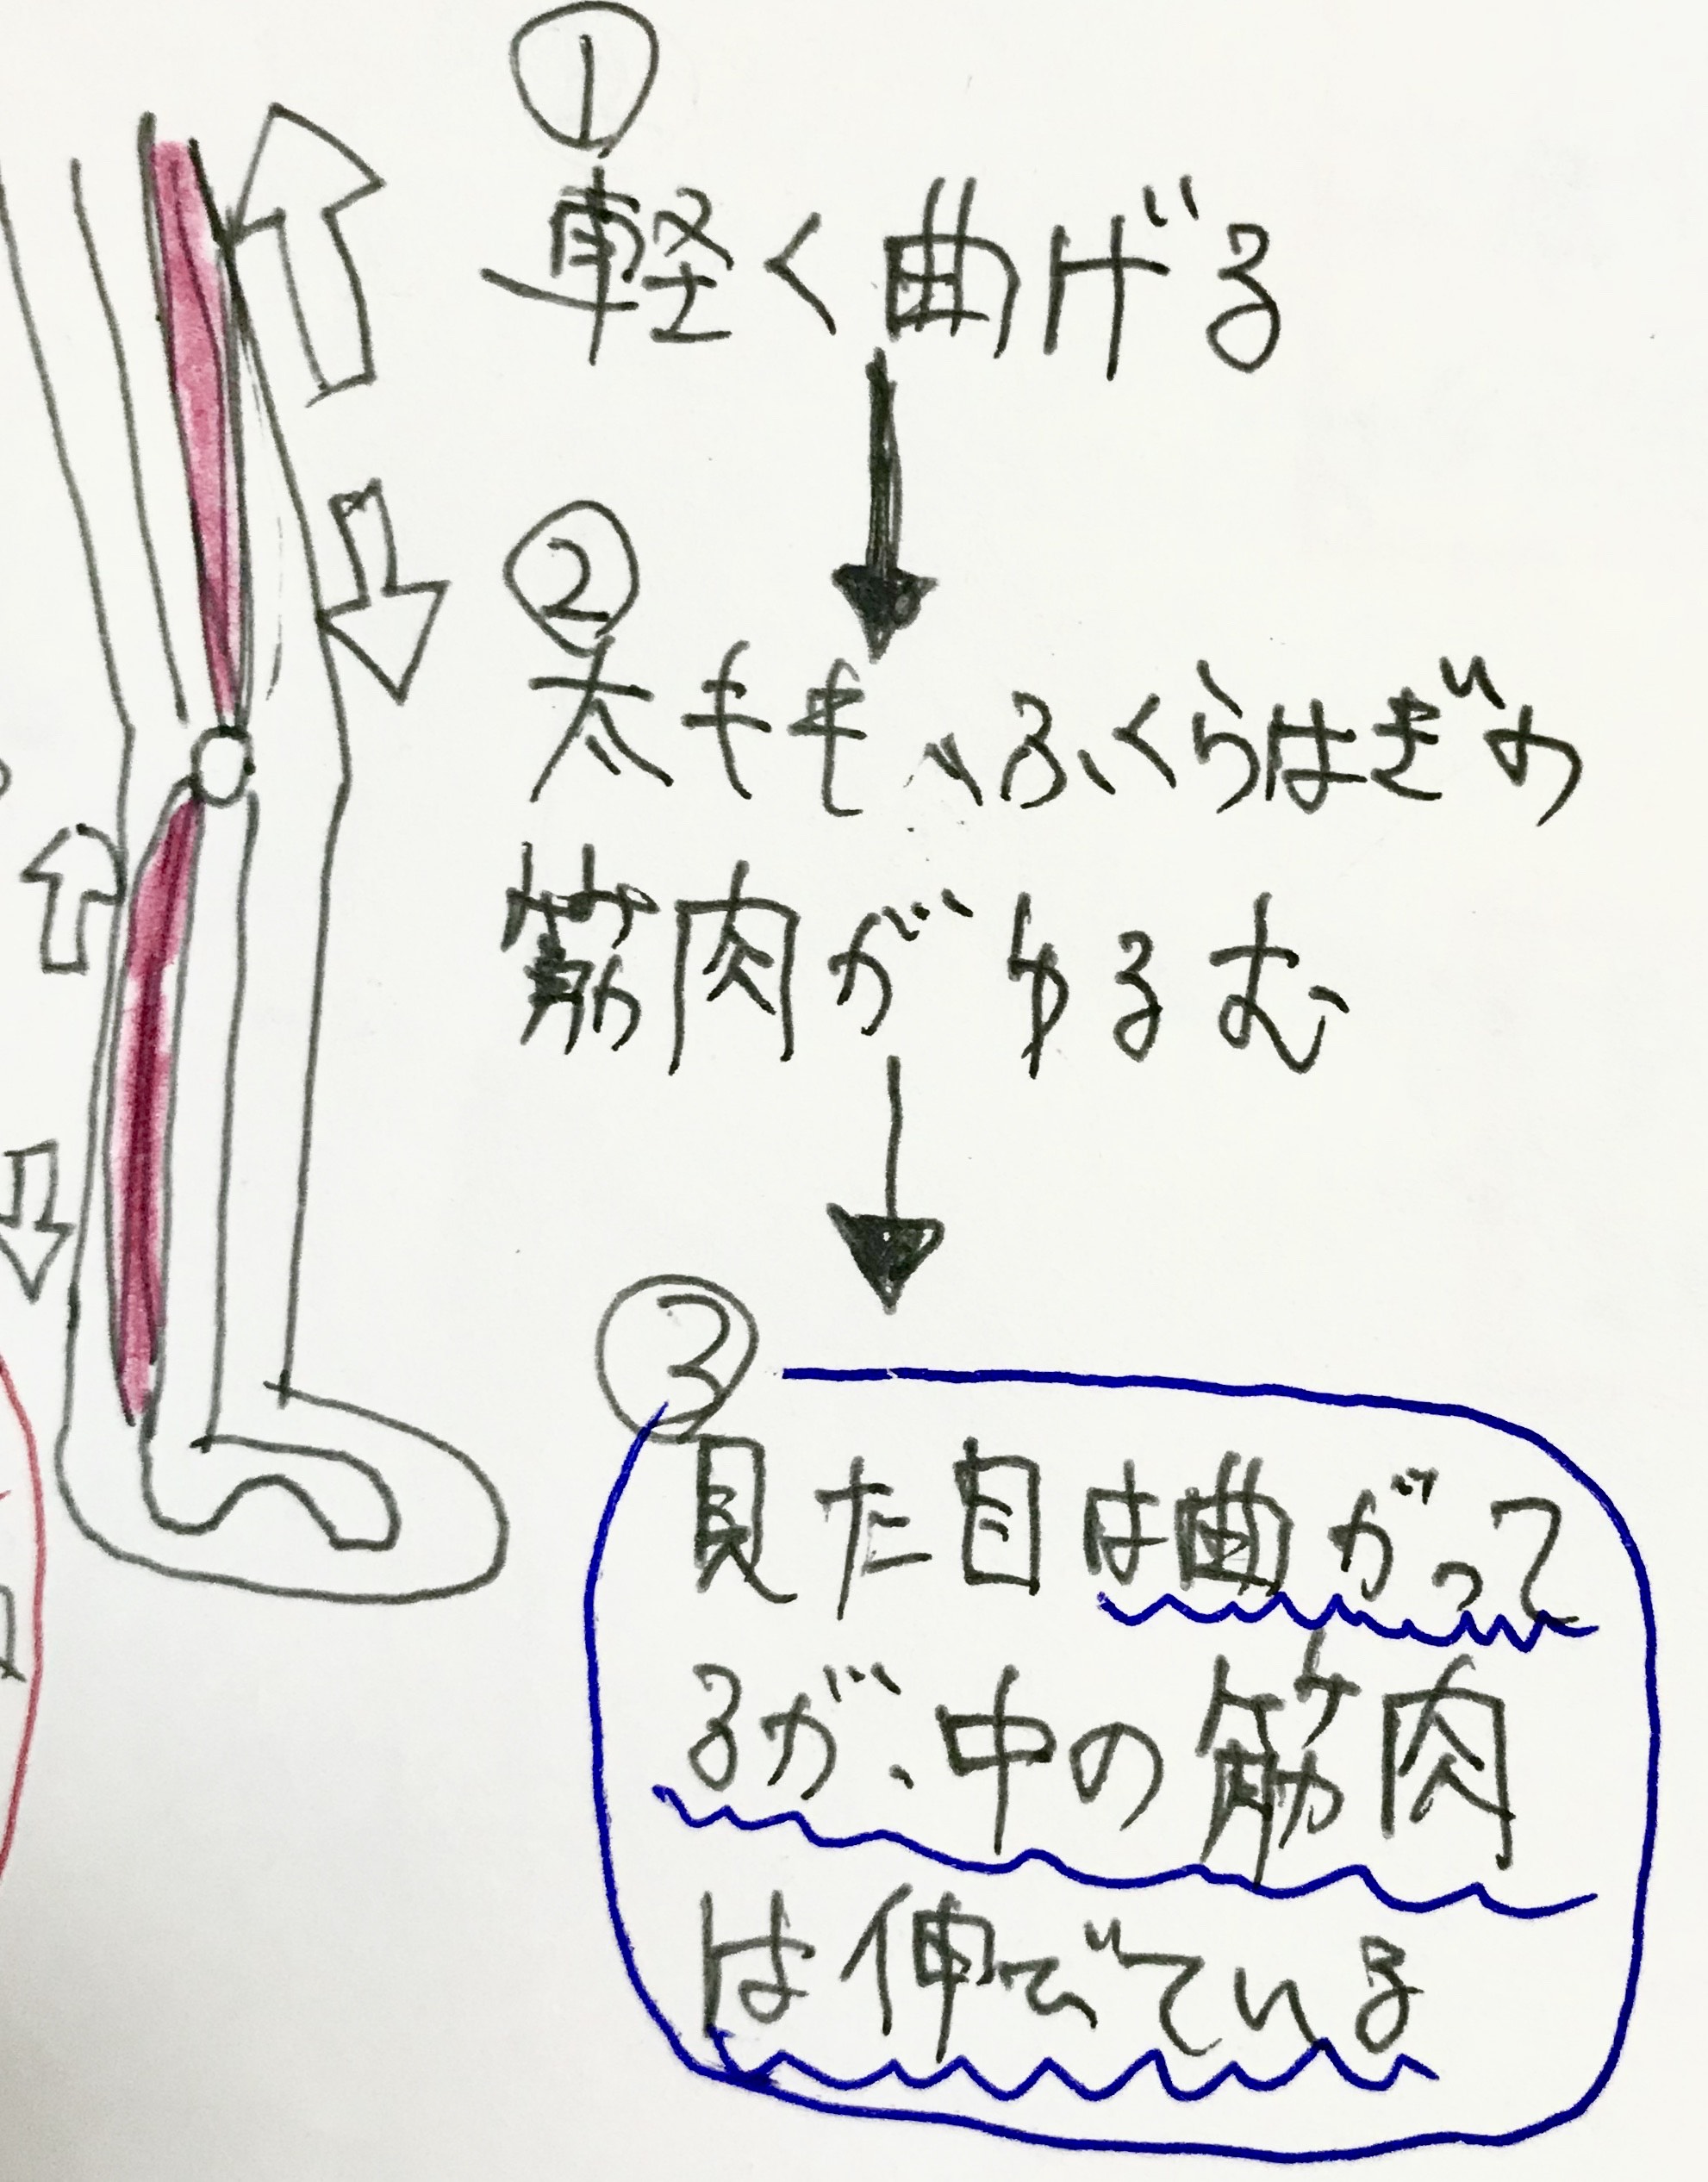 ①
軽く曲げる
②
太モモ、ふくらはぎの
筋肉がゆるむ
③
見た目は曲がって
るが、中の筋肉
は伸びている